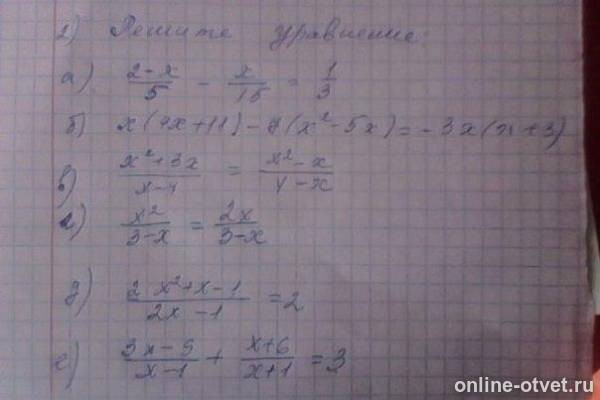 2) Решите уравнение:
а) (2-x)/5 - x/15 = 1/3
б) x(4x+11) - 7(x²-5x) = -3x(x+3)
в) (x²+3x)/(x-4) = (x²-x)/(4-x)
г) x²/(3-x) = 2x/(3-x)
д) (2x²+x-1)/(2x-1) = 2
е) (3x-5)/(x-1) + (x+6)/(x+1) = 3
online-otvet.ru